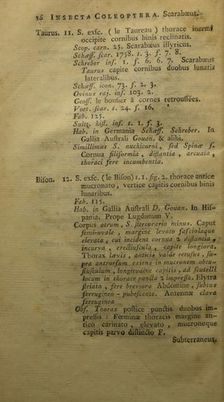 16 INSECTA COLEOPTERA. Scarabæus.
Taurus. 11. S. exſc. (le Taureau) thorace inermi
occipite cornibus binis reclinatis.
Scop. carn. 25. Scarabæus illyricus.
Schæff. ſcar. 1758. t. 3. f. 7. 8.
Schreber inſ. 1. f. 6. 7. Scarabæus
Taurus capite cornibus duobus lunatis
lateralibus.
Schæff. icon. 73. f. 2. 3.
inſ. 103. 2.
Geoff. le bouſier à cornes retrouſſées.
Voet. ſcar. t. 24. f. 16.
Fab. 125.
Sultz. hiſt. inſ. t. 1. f. 3.
Hab. in Germania Schæff. Schreber. In
Gallia Auſtrali Gouan. & alibi.
Simillimus S. nuchicorni, ſed Spinæ ſ.
Cornua filiformia, diſtantia, arcuata,
thoraci fere incumbentia.
Biſon. 12. S. exſc. (le Biſon) t. fig. 2. thorace antice
mucronato, vertice capitis cornibus binis
lunaribus.
Fab. 115.
Hab. in Gallia Auſtrali D. Gouan. In Hiſ-
pania. Prope Lugdunum V.
Corpus atrum, S. ſtercorario minus. Caput
ſemi-ovale, margine levato
elevata, cui inſident cornua 2 diſtantia,
incurva, craſſiuſcula, capite longiora.
Thorax lævis, antice valde retuſus, ſu-
pra antrorſum exiens in mucronem obtu-
ſiuſculum, longitudine capitis, ad ſcutelli
locum in thorace puncta 2 impreſſa. Elytra
ſtriata, fere breviora Abdomine, ſubtus
ferrugineo-pubeſcente. Antennæ clava
ferruginea
Obſ. Thorax poſtice punctis duobus im-
preſſis: Feminæ thoracis margine an-
tico carinato, elevato, mucroneque
capitis parvo diſtincto F.
Subterraneus.